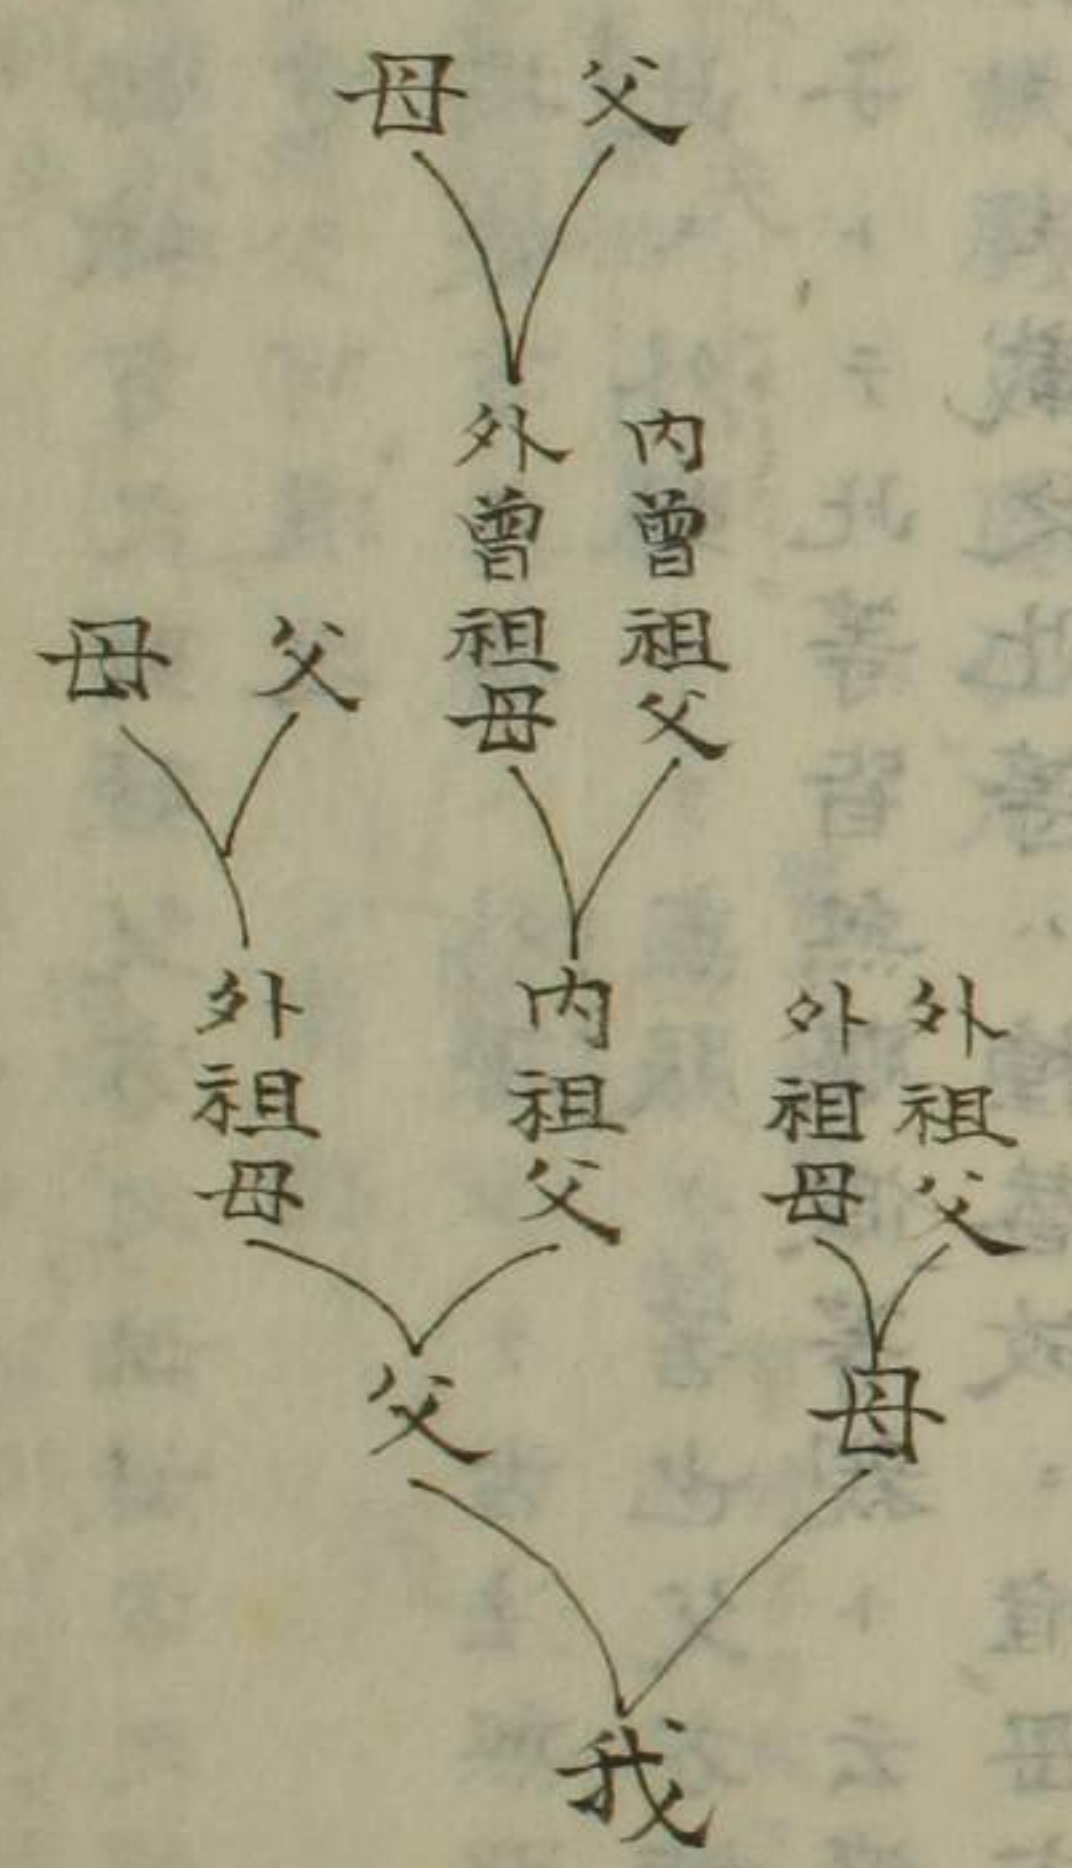 父
母
內曾祖父
外曾祖母
父
母
外祖父
外祖母
內祖父
外祖母
母
父
我